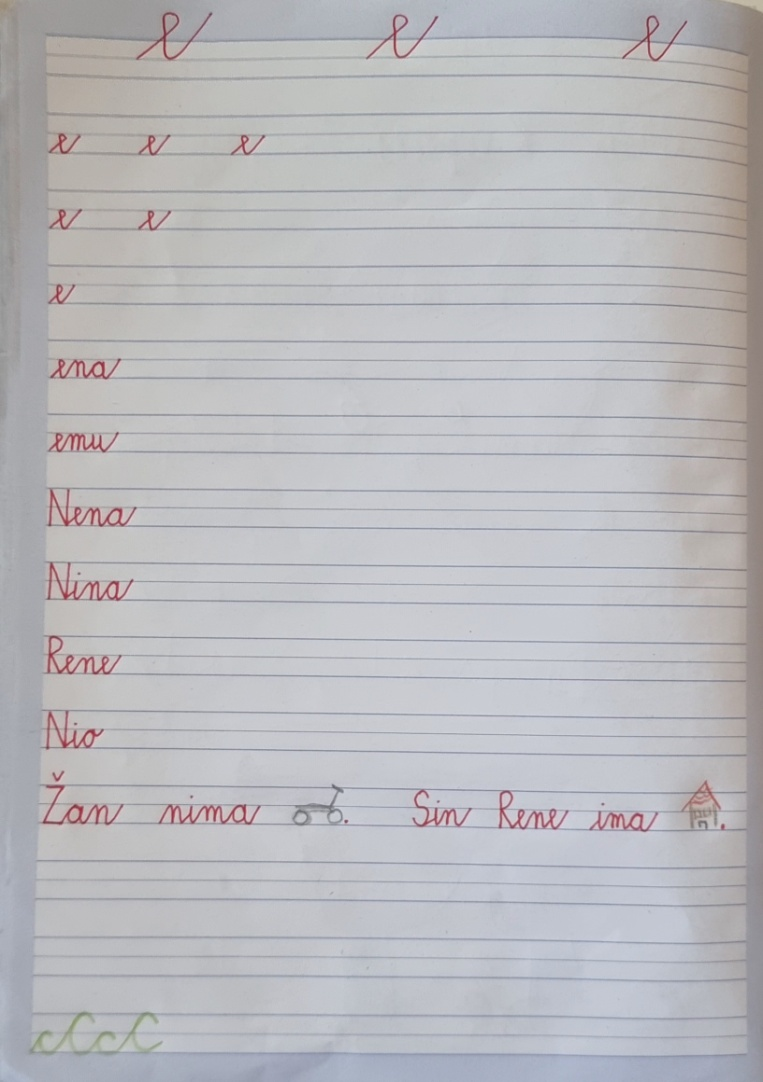 e e e
e e e
e e
e
ena
emu
Nena
Nina
Rene
Nio
Žan nima . Sin Rene ima .
cCcC